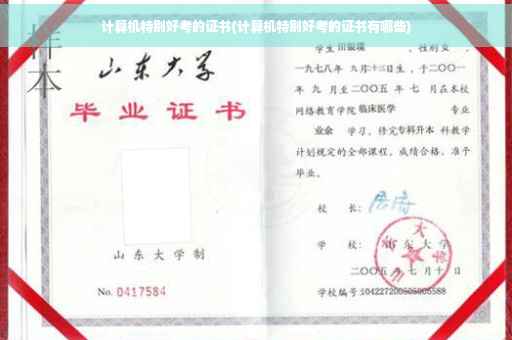 计算机特别好考的证书(计算机特别好考的证书有哪些)
样本
山东大学
毕业证书
山东大学制
No. 0417584
学生 田银瑞 ,性别 女 ,
一九七八年 九月十三日生,于二〇〇一
年 九 月至二〇〇五 年 七 月在本校
网络教育学院 临床医学 专业
业余 学习,修完 专科升本 科教学
计划规定的全部课程,成绩合格,准予
毕业。
校 长:
学 校: 山东大学
二〇〇五年 七月十 日
学校编号:104227200505005588